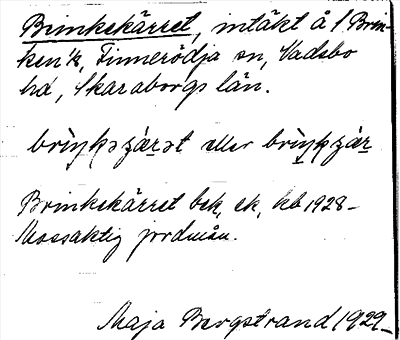 Brinkekärret, intäkt å 1 Brin-
ken 1/2, Finnerödja sn, Vadsbo
hd, Skaraborgs län.
eller
Brinkekärret bek, ek, kb 1928-
Mossaktig jordmån.
Maja Bergstrand 1929-